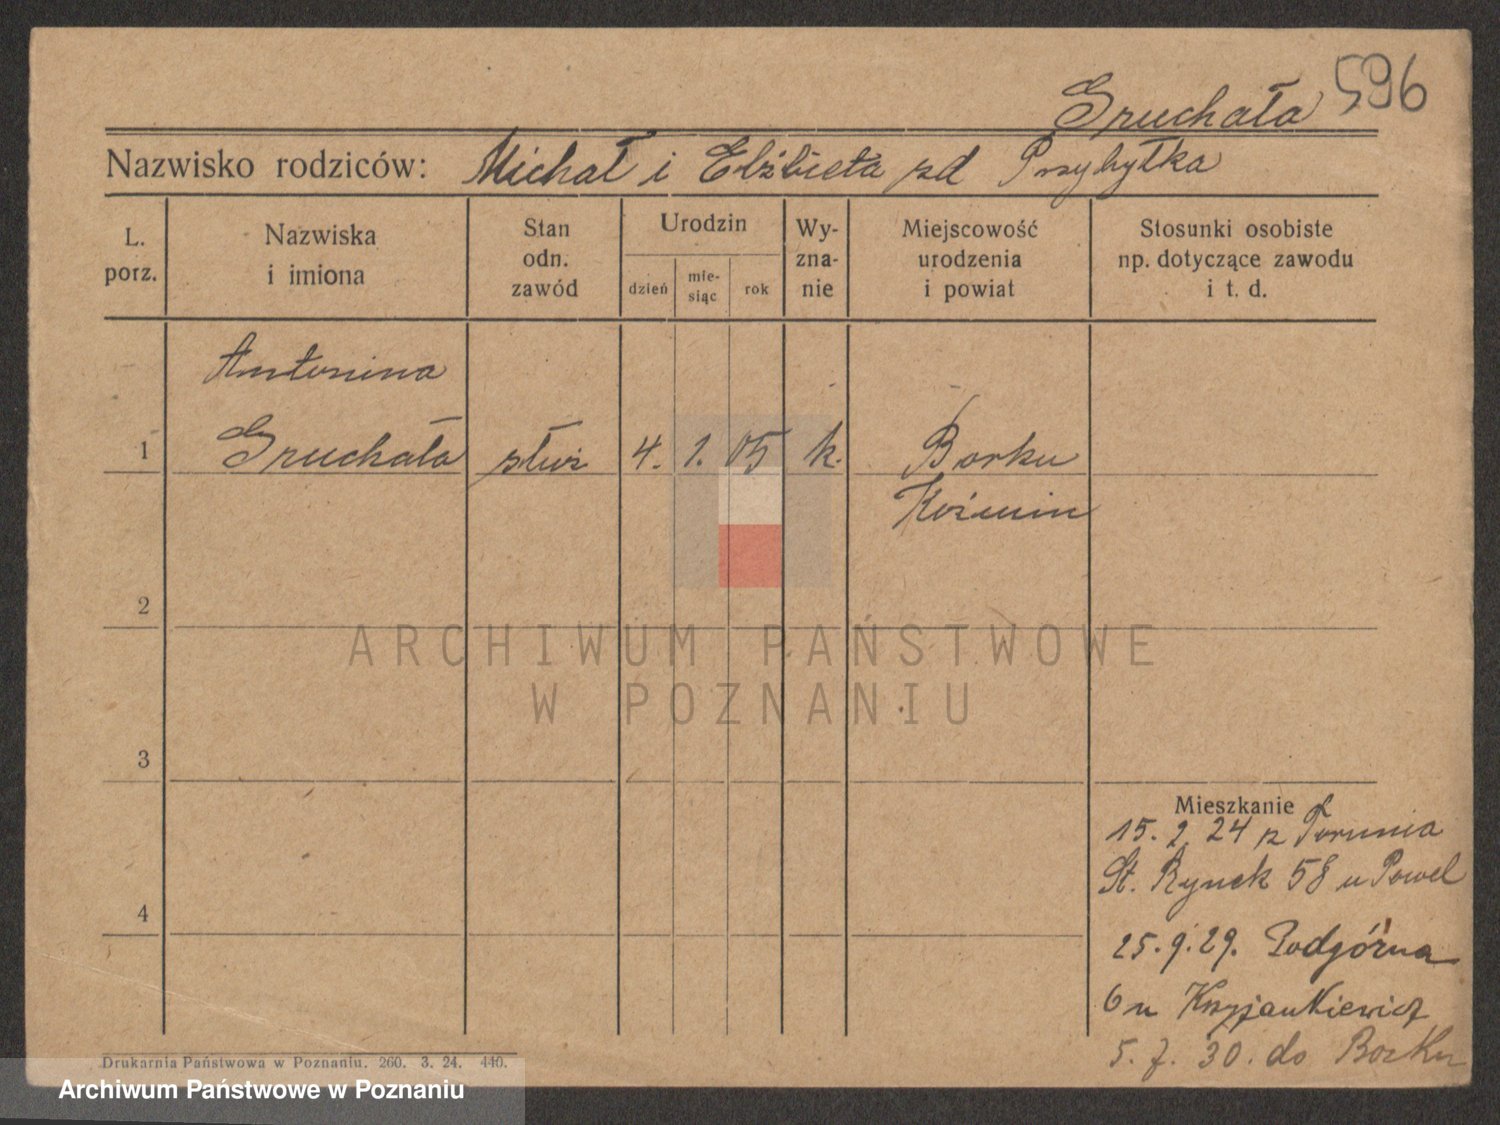 596
Gruchała
Nazwisko rodziców: Michał i Elżbieta zd Przybyłka
L. porz.
Nazwiska i imiona
Stan odn. zawód
Urodzin
dzień
mie-siąc
rok
Wy-zna-nie
Miejscowość urodzenia i powiat
Stosunki osobiste np. dotyczące zawodu i t. d.
Antonina
1 Gruchała służ 4. 1. 05 k. Borku
Koźmin
2
ARCHIWUM PAŃSTWOWE
W POZNANIU
3
Mieszkanie
15. 2 24 z Torunia
St. Rynek 58 u Powel
4
25. 9. 29. Podgórna
6 u Krzyżankiewicz
5. 7. 30. do Borku
Drukarnia Państwowa w Poznaniu. 260. 3. 24. 440.
Archiwum Państwowe w Poznaniu